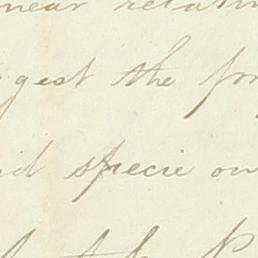 near relati
gest the pr
id specie on